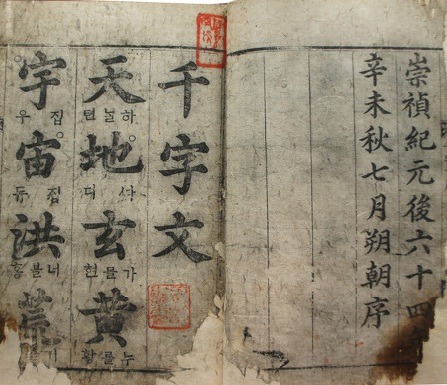 崇禎紀元後六十四
辛未秋七月朔朝序
千字文
天 하늘텬 地 ᄯᅡ디 玄 가믈현 黃 누를황
宇 집우 宙 집듀 洪 너블홍 荒